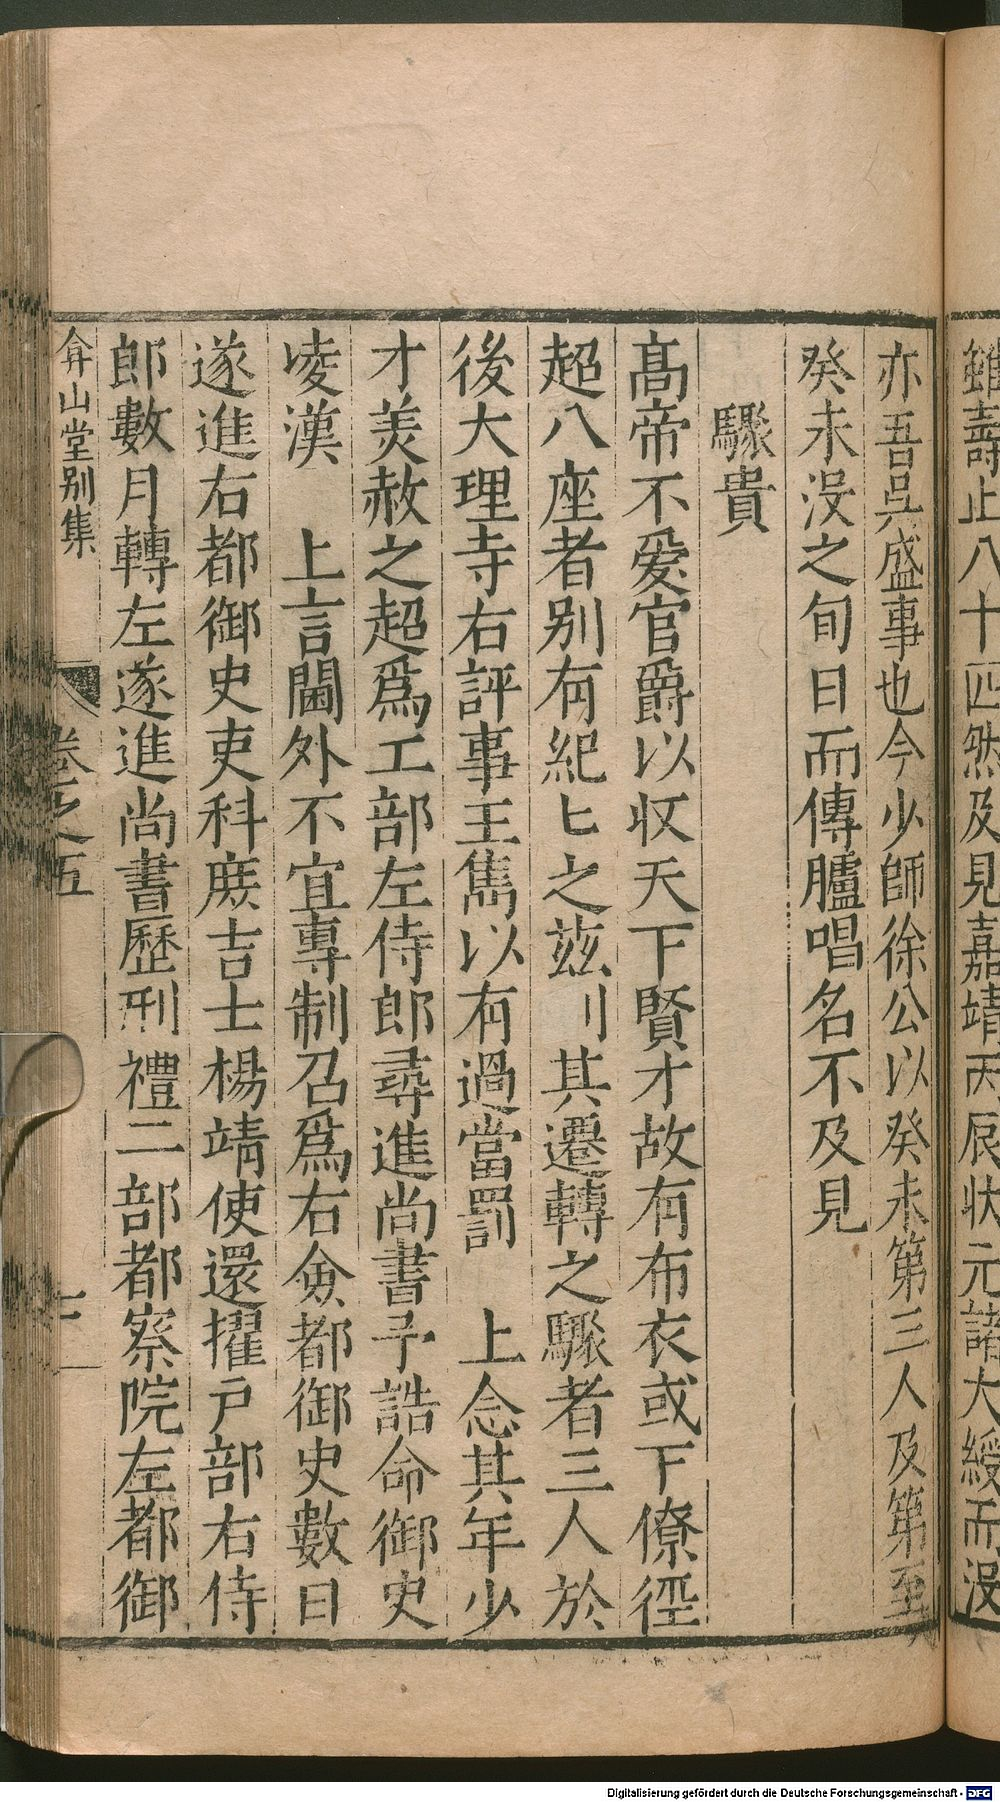 雖壽止八十四然及見嘉靖丙辰狀元諸大綬而没
亦吾吳盛事也今少師徐公以癸未第三人及第至
癸未没之旬日而傳臚唱名不及見
驟貴
髙帝不爱官爵以収天下賢才故有布衣或下僚徑
超八座者别有紀匕之兹刂其遷轉之驟者三人於
後大理寺右評事王雋以有過當罰　上念其年少
才美赦之超爲工部左侍郎尋進尚書予誥命御史
凌漢　上言閫外不宜專制召爲右僉都御史數日
遂進右都御史吏科庶吉士楊靖使還擢户部右侍
郎數月轉左遂進尚書歷刑禮二部都察院左都御
弇山堂别集
卷之五